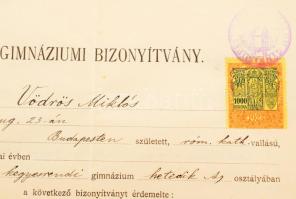 GIMNÁZIUMI BIZONYÍTVÁNY.
Vödrös Miklós
ug. 23-án
Budapesten született, róm. kath. vallású,
ai évben
kegyesrendi gimnázium hetedik A) osztályában
a következő bizonyítványt érdemelte:
1000